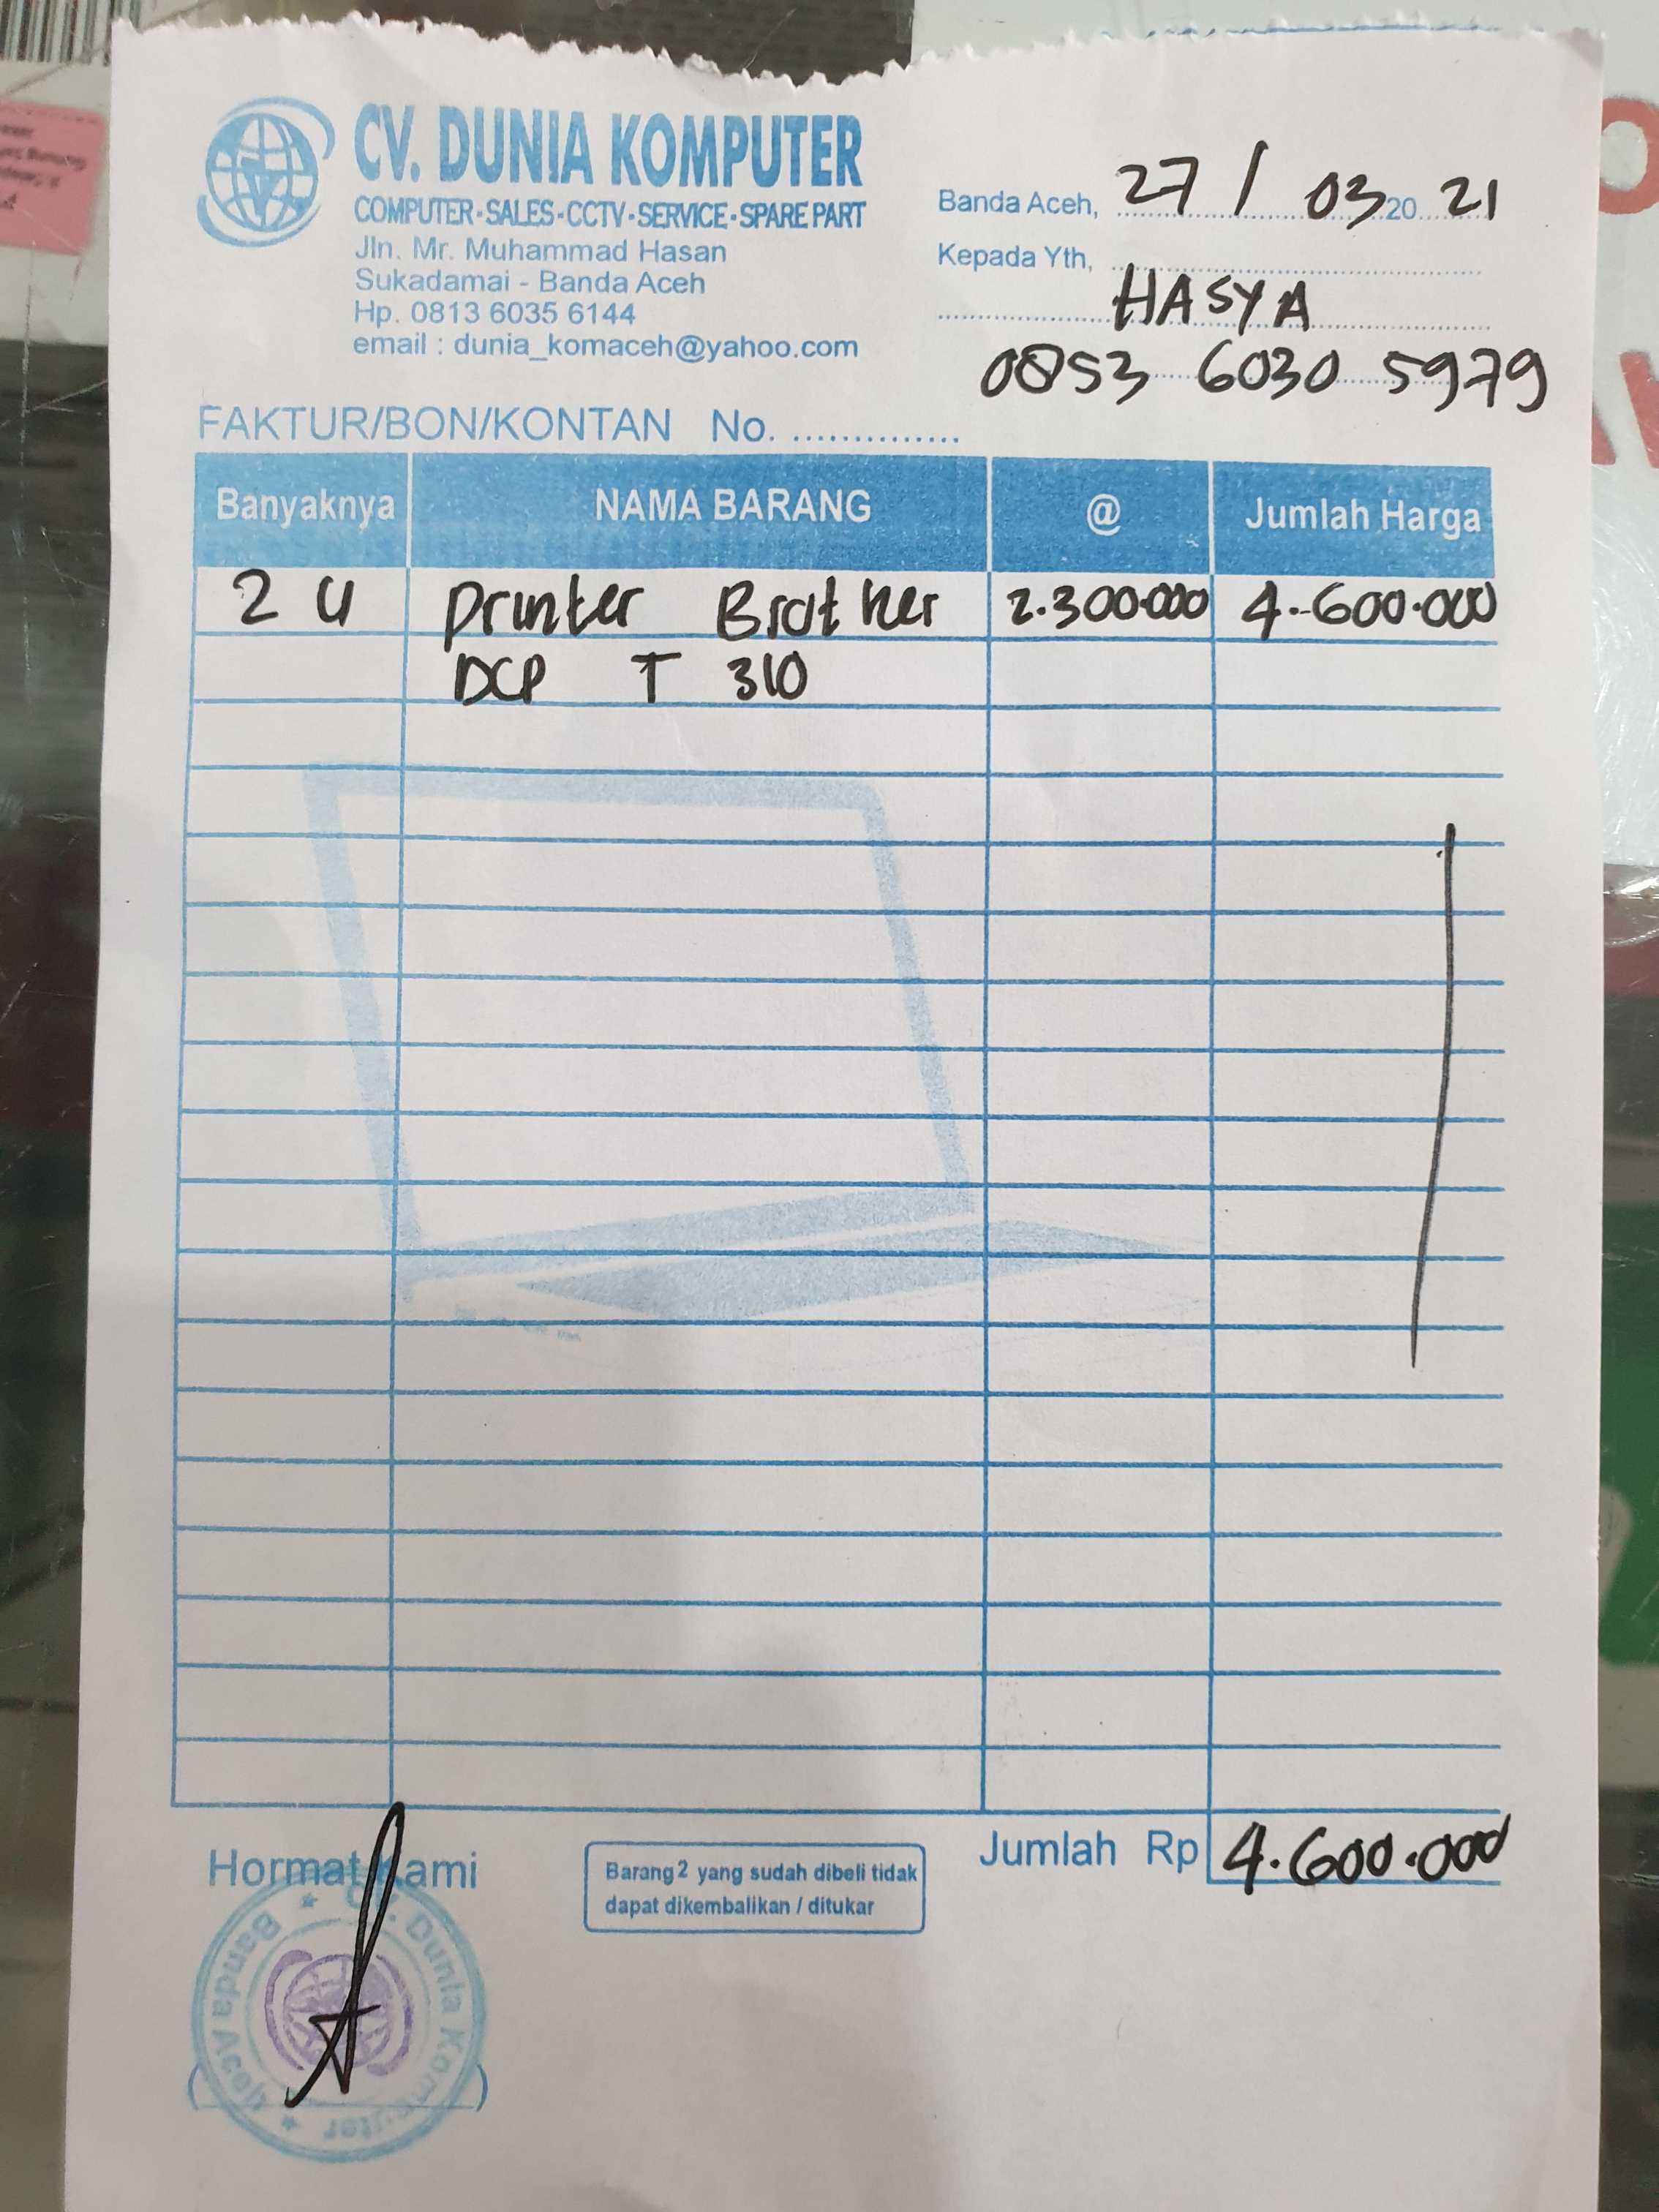 CV. DUNIA KOMPUTER
COMPUTER-SALES-CCTV-SERVICE-SPARE PART
Jln. Mr. Muhammad Hasan
Sukadamai - Banda Aceh
Hp. 0813 6035 6144
email : dunia_komaceh@yahoo.com
Banda Aceh, 27 / 03 20 21
Kepada Yth,
HASYA
0853 6030 5979
FAKTUR/BON/KONTAN No. ...............
Banyaknya NAMA BARANG @ Jumlah Harga
2 U Printer Brother 2.300.000 4.600.000
DCP T 310
Jumlah Rp 4.600.000
Hormat Kami
Barang2 yang sudah dibeli tidak
dapat dikembalikan / ditukar
CV. Dunia Komputer
Banda Aceh